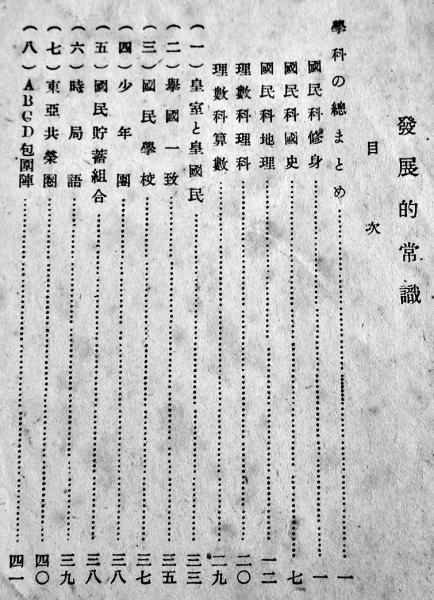 發展的常識
目次
學科の總まとめ……一
國民科修身……一
國民科國史……七
國民科地理……一二
理數科理科……二〇
理數科算數……二九
(一)皇室と皇國民……三三
(二)擧國一致……三五
(三)國民學校……三七
(四)少年團……三八
(五)國民貯蓄組合……三八
(六)時局語……三九
(七)東亞共榮圈……四〇
(八)ABCD包圍陣……四一